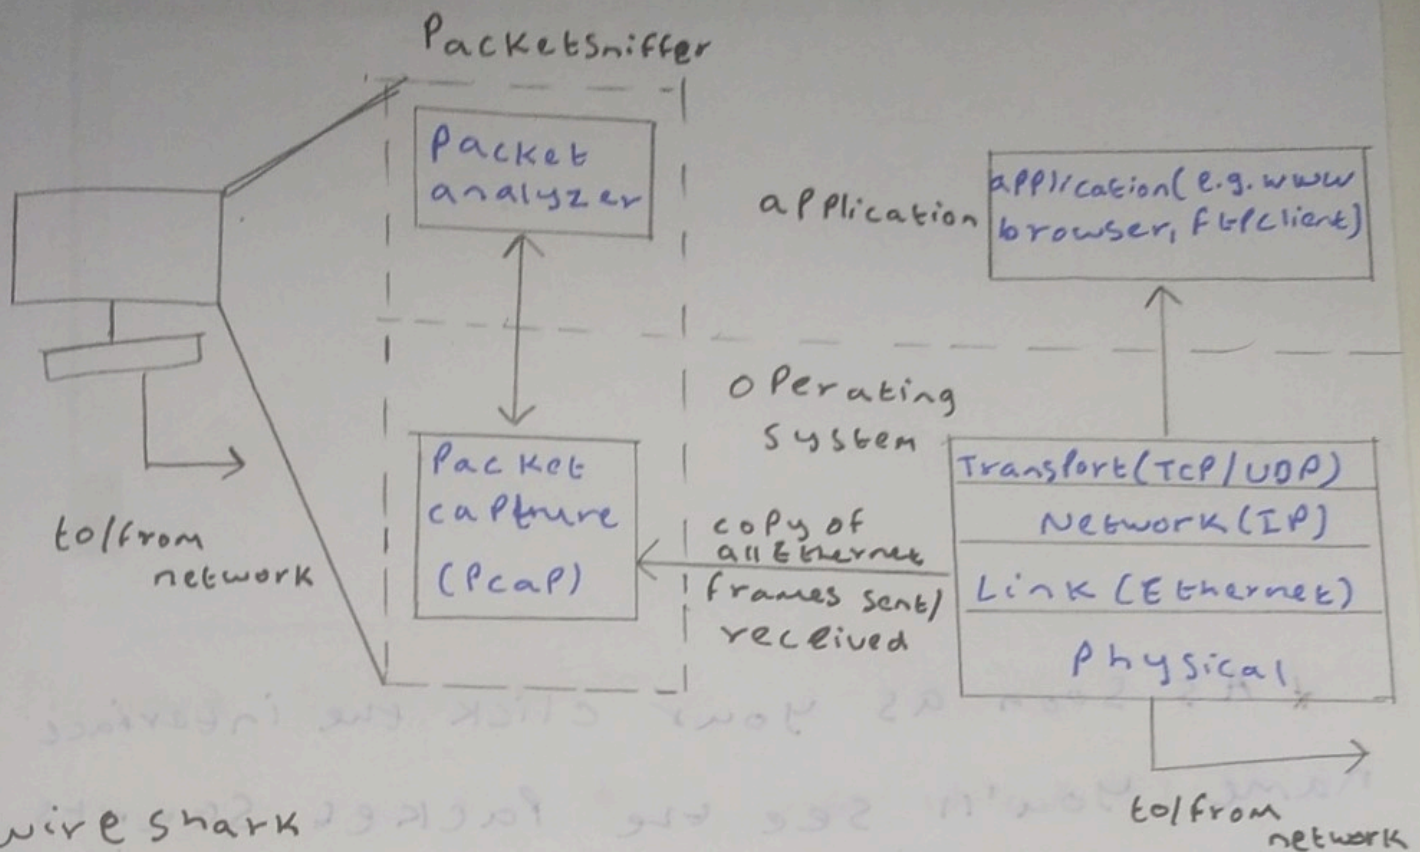 Packetsniffer
Packet
analyzer
application
application(e.g. www
browser, ftpclient)
operating
system
Packet
capture
(Pcap)
copy of
all Ethernet
frames sent/
received
Transport(TCP/UDP)
Network(IP)
Link(Ethernet)
physical
to/from
network
to/from
network
wireshark